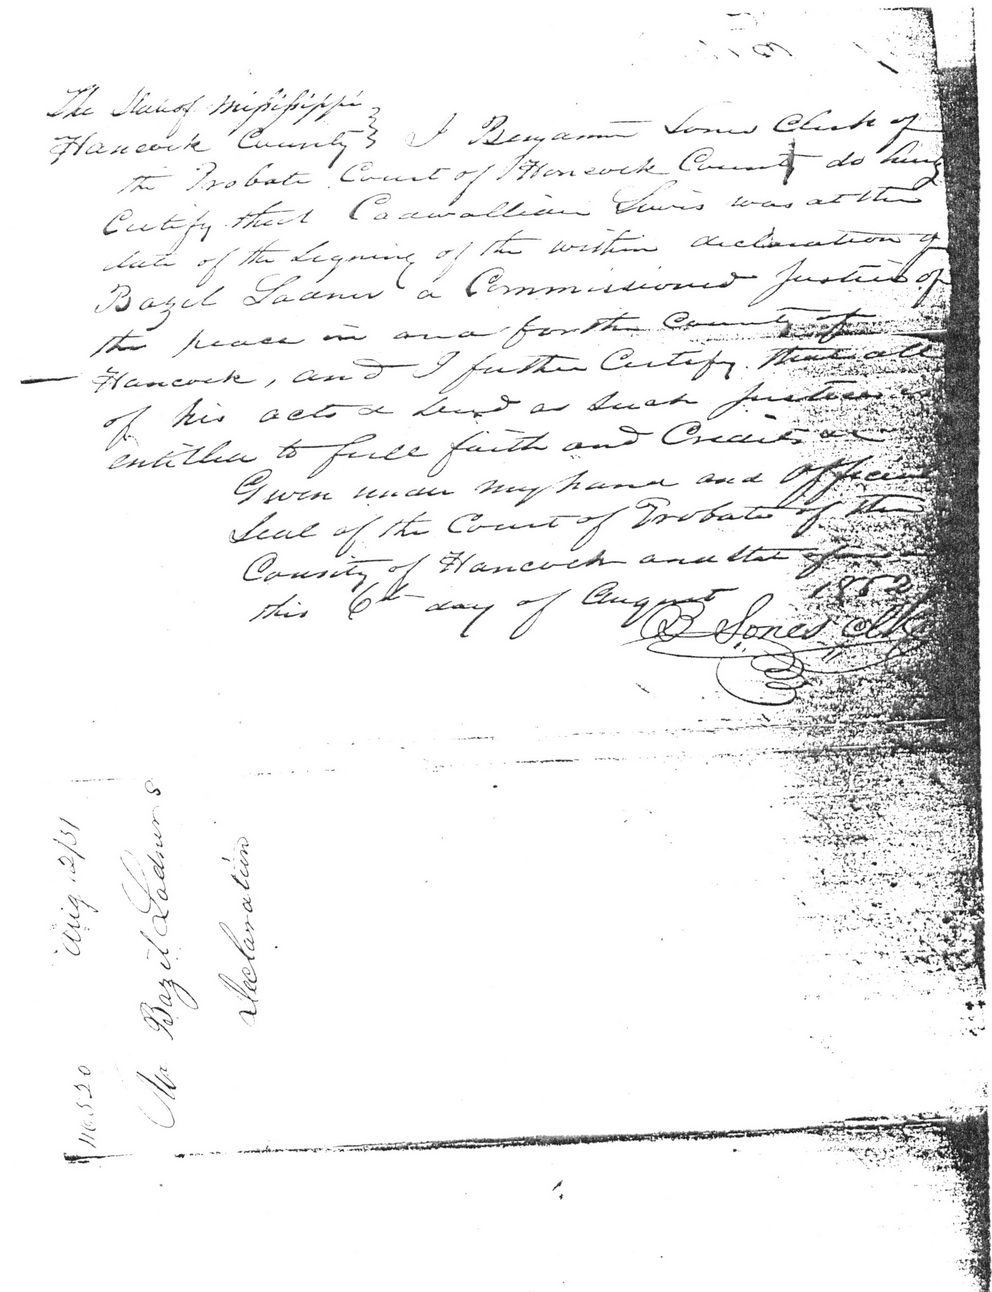 The State of Mississippi
Hancock County } I Benjamin Sones Clerk of
the Probate Court of Hancock County do
Certify that Cadwallian Lewis was at the
date of the signing of the within declaration of
Bazil Ladner a Commissioned Justice of
the peace in and for the County of
Hancock, and I further Certify that all
of his acts & as such Justice
entitled to full faith and Credit
Given under my hand and official
Seal of the Court of Probate of the
County of Hancock and State
this 6th day of August 1852
B Sones Clk
No. 520 Aug 12/51
Mr Bazil Ladners
Declaration